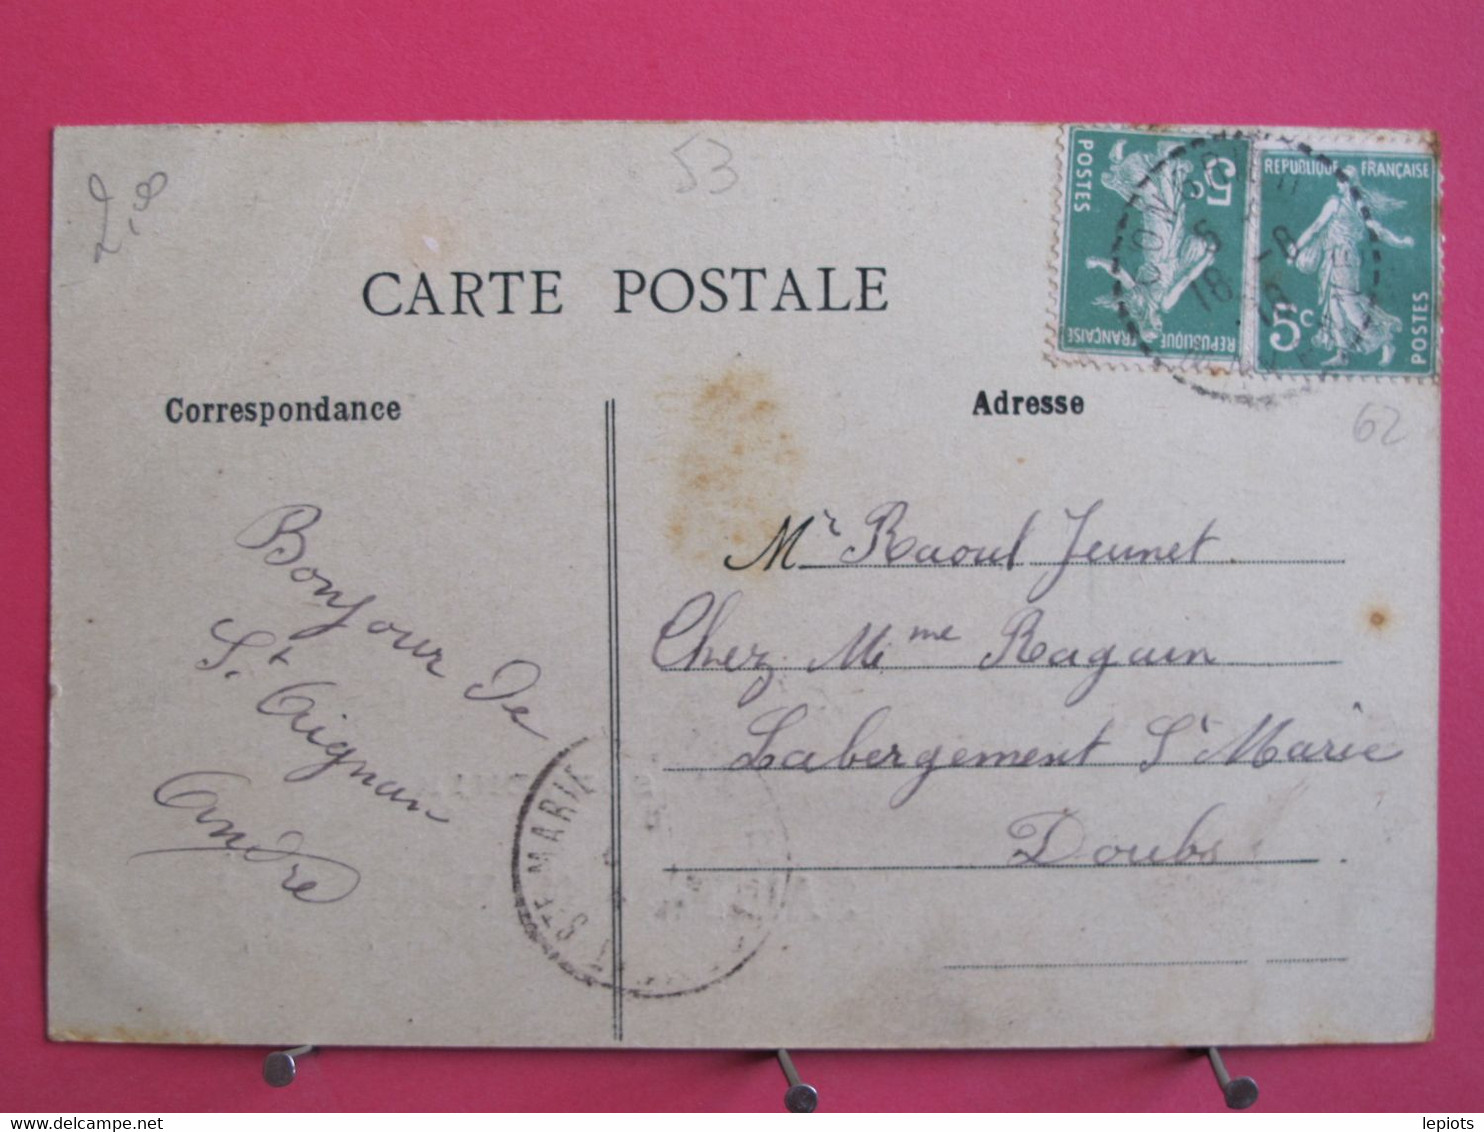 2,50
53
CARTE POSTALE
POSTES
5c
RÉPUBLIQUE FRANÇAISE
RÉPUBLIQUE FRANÇAISE
5c
POSTES
18
62
Correspondance
Adresse
Bonjour de
St Aignan
André
Mr Raoul Jeunet
Chez Mme Ragain
Labergement St Marie
Doubs
STE MARIE
lepiots